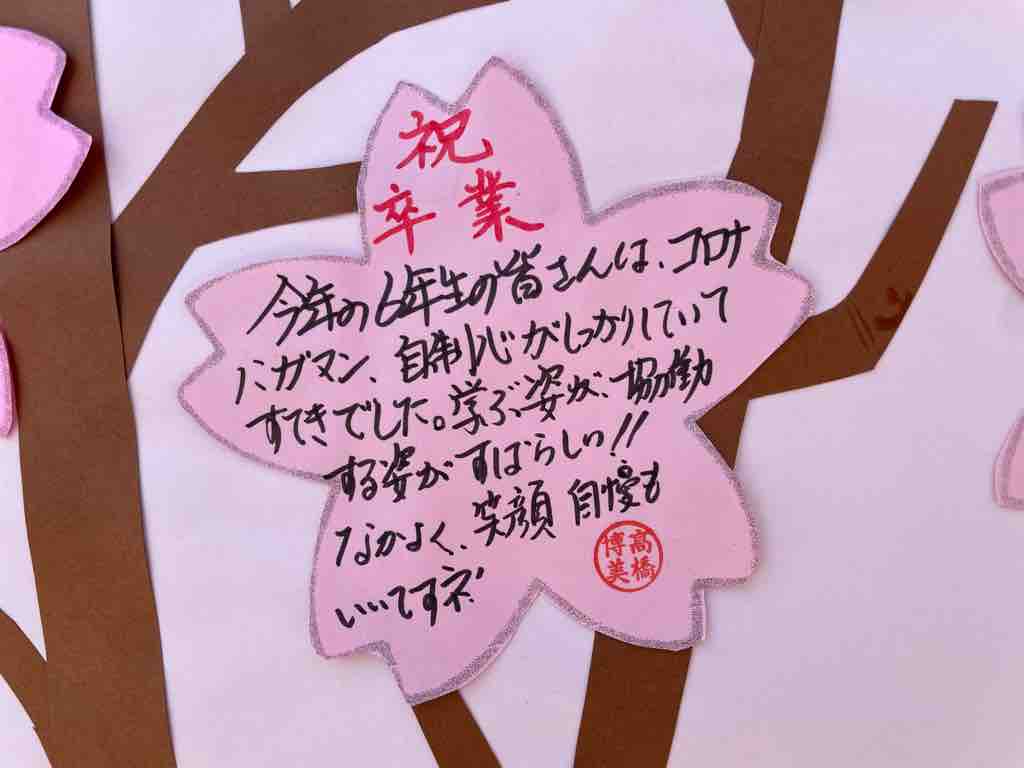 祝
卒業
今年の6年生の皆さんは、コロナ
ハガマン、自制心がしっかりしていて
すてきでした。学ぶ姿が、協働
する姿がすばらしい!!
なかよく、笑顔 自慢も
いいですネ!
高橋
博美